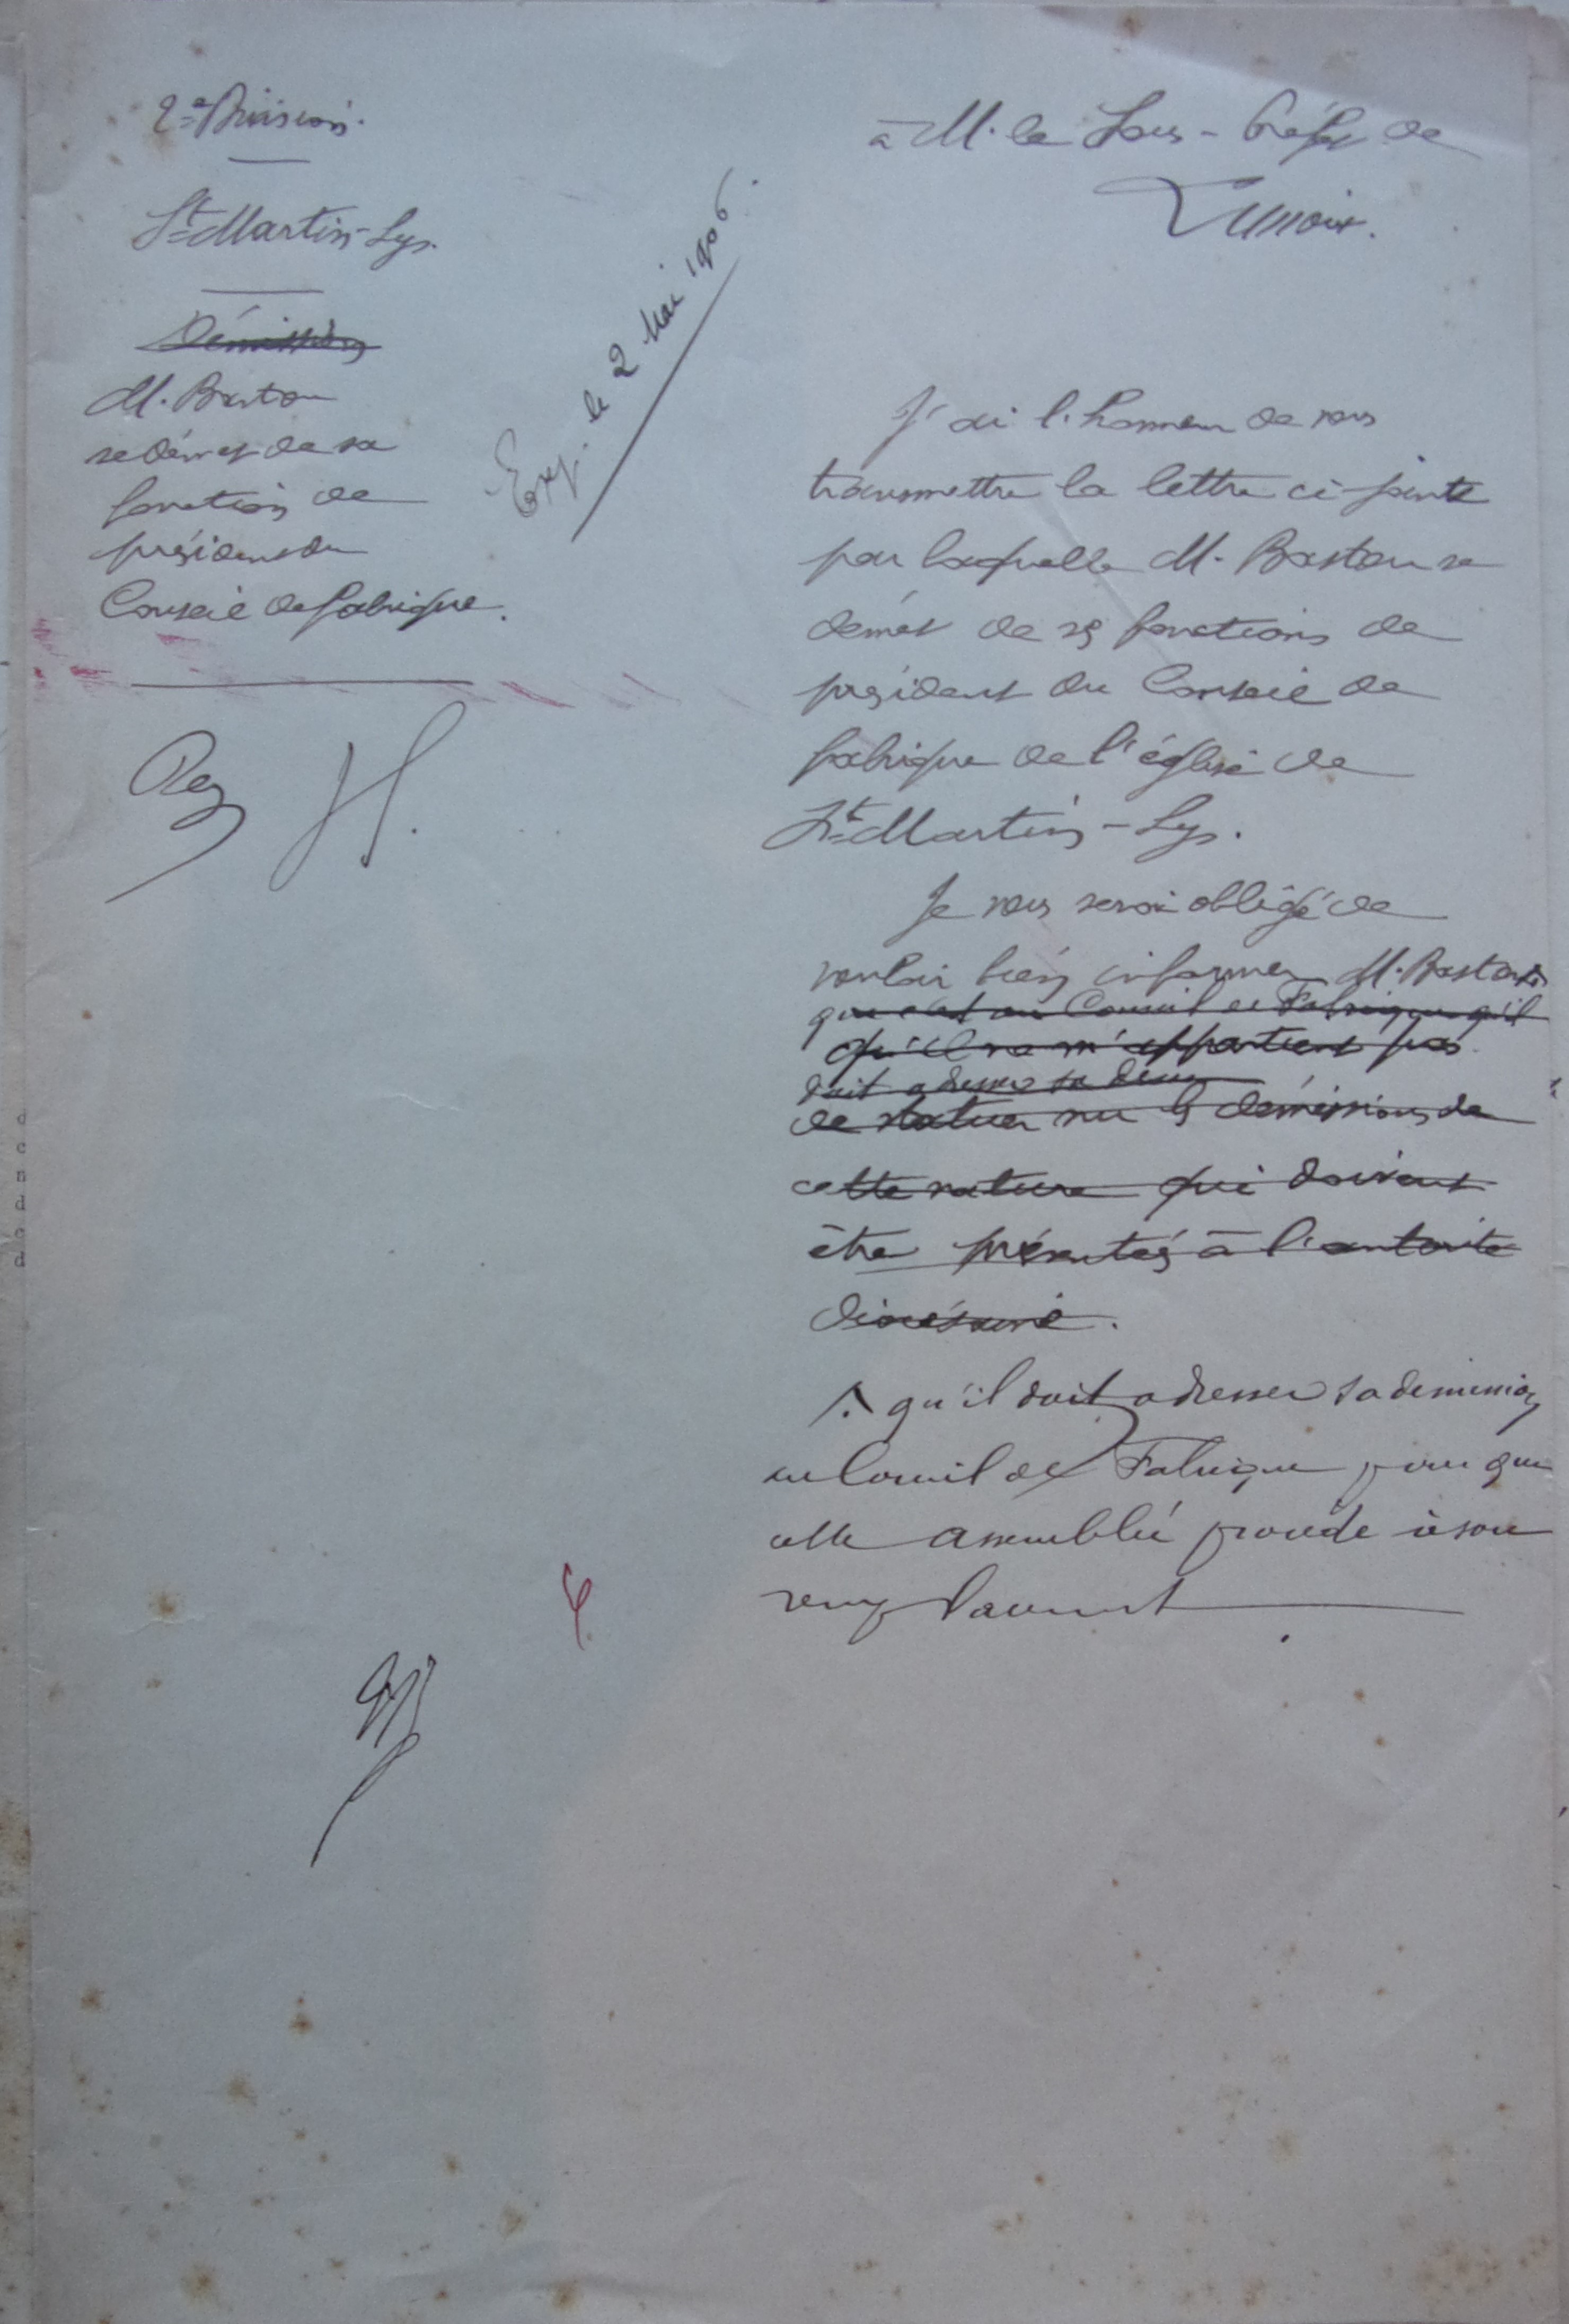 2e Division.
St Martin-Lys.
Démission
M. Bastou
se démet de sa
fonction de
président du
Conseil de fabrique.
Exp. le 2 Mai 1906.
à M. le Sous-Préfet de
Limoux.
J'ai l'honneur de vous
transmettre la lettre ci-jointe
par laquelle M. Bastou se
démet de ses fonctions de
président du Conseil de
fabrique de l'église de
St Martin-Lys.
Je vous serai obligé de
vouloir bien informer M. Bastou
que c'est au Conseil de Fabrique qu'il
qu'il ne m'appartient pas
doit adresser sa dém
de statuer sur les démissions de
cette nature qui doivent
être présentées à l'autorité
diocésaine.
qu'il doit adresser sa démission
au Conseil de Fabrique pour que
cette assemblée procède à son
remplacement